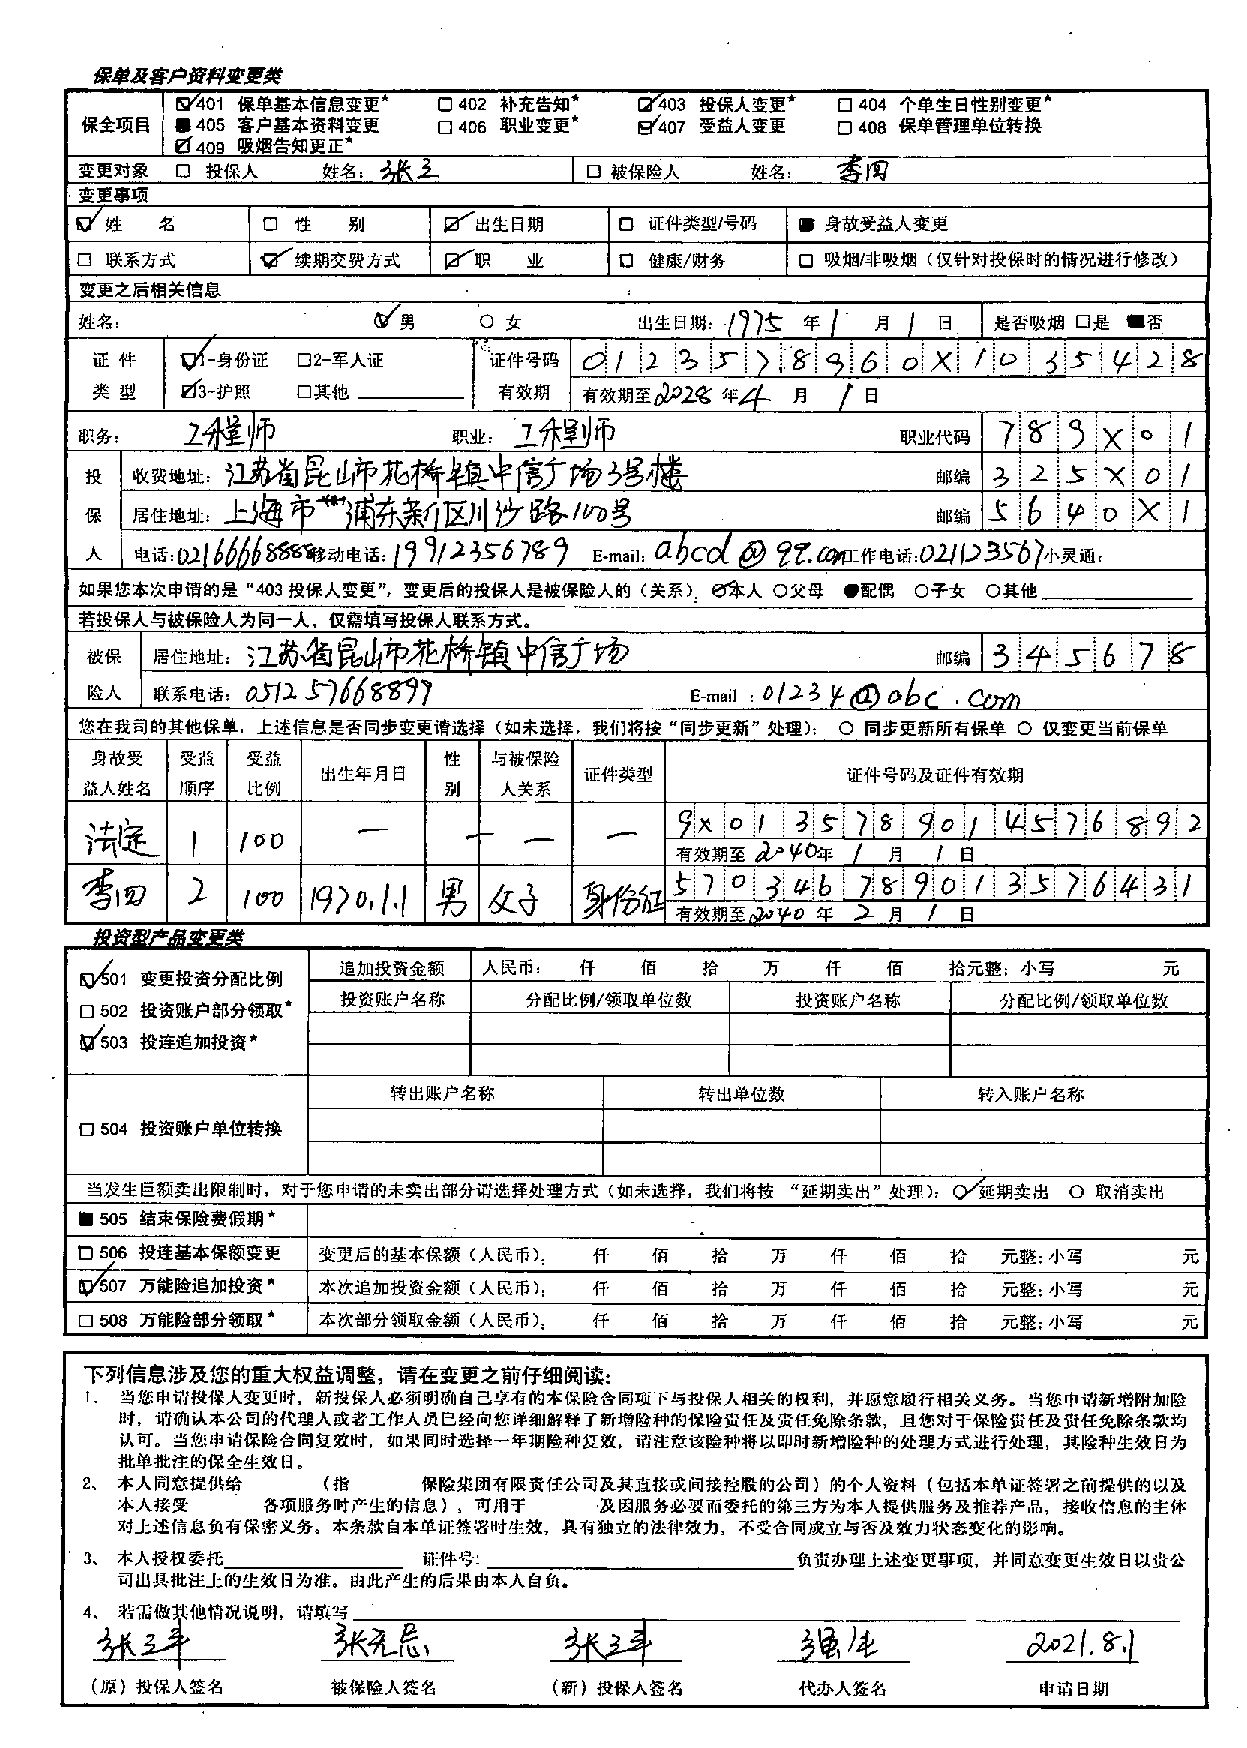 保单及客户资料变更类
保全项目 ☑401 保单基本信息变更* ☐402 补充告知* ☑403 投保人变更* ☐404 个单生日性别变更*
■405 客户基本资料变更 ☐406 职业变更* ☑407 受益人变更 ☐408 保单管理单位转换
☑409 吸烟告知更正*
变更对象 ☐ 投保人 姓名: 张三 ☐ 被保险人 姓名: 李四
变更事项
☑ 姓 名 ☐ 性 别 ☑ 出生日期 ☐ 证件类型/号码 ■ 身故受益人变更
☐ 联系方式 ☑ 续期交费方式 ☑ 职 业 ☐ 健康/财务 ☐ 吸烟/非吸烟（仅针对投保时的情况进行修改）
变更之后相关信息
姓名: ☑男 ○女 出生日期: 1975 年 1 月 1 日 是否吸烟 ☐是 ■否
证 件 ☑1-身份证 ☐2-军人证 证件号码 0123578960X1035428
类 型 ☑3-护照 ☐其他 有效期 有效期至2028年4月1日
职务: 工程师 职业: 工程师 职业代码 789X01
投 收费地址: 江苏省昆山市花桥镇中信广场3号楼 邮编 325X01
保 居住地址: 上海市 浦东新区川沙路100号 邮编 5640X1
人 电话:02166668888 移动电话:19912356789 E-mail: abcd@qq.com 工作电话:021123567 小灵通:
如果您本次申请的是“403 投保人变更”，变更后的投保人是被保险人的（关系）: ☑本人 ○父母 ●配偶 ○子女 ○其他
若投保人与被保险人为同一人，仅需填写投保人联系方式。
被保 居住地址: 江苏省昆山市花桥镇中信广场 邮编 345678
险人 联系电话: 051257668899 E-mail : 01234@abc.com
您在我司的其他保单，上述信息是否同步变更请选择（如未选择，我们将按“同步更新”处理）: ○ 同步更新所有保单 ○ 仅变更当前保单
身故受益人姓名 受益顺序 受益比例 出生年月日 性别 与被保险人关系 证件类型 证件号码及证件有效期
法定 1 100 — — — — 9X0135789014576892
有效期至2040年1月1日
李四 2 100 1970.1.1 男 父子 身份证 570346789013576431
有效期至2040年2月1日
投资型产品变更类
☑501 变更投资分配比例 追加投资金额 人民币: 仟 佰 拾 万 仟 佰 拾元整; 小写 元
☐502 投资账户部分领取* 投资账户名称 分配比例/领取单位数 投资账户名称 分配比例/领取单位数
☑503 投连追加投资*
转出账户名称 转出单位数 转入账户名称
☐504 投资账户单位转换
当发生巨额卖出限制时，对于您申请的未卖出部分请选择处理方式（如未选择，我们将按 “延期卖出”处理）: ☑延期卖出 ○ 取消卖出
■505 结束保险费假期*
☐506 投连基本保额变更 变更后的基本保额（人民币）: 仟 佰 拾 万 仟 佰 拾 元整; 小写 元
☑507 万能险追加投资* 本次追加投资金额（人民币）: 仟 佰 拾 万 仟 佰 拾 元整; 小写 元
☐508 万能险部分领取* 本次部分领取金额（人民币）: 仟 佰 拾 万 仟 佰 拾 元整; 小写 元
下列信息涉及您的重大权益调整，请在变更之前仔细阅读:
1、 当您申请投保人变更时，新投保人必须明确自己享有的本保险合同项下与投保人相关的权利，并愿意履行相关义务。当您申请新增附加险
时，请确认本公司的代理人或者工作人员已经向您详细解释了新增险种的保险责任及责任免除条款，且您对于保险责任及责任免除条款均
认可。当您申请保险合同复效时，如果同时选择一年期险种复效，请注意该险种将以即时新增险种的处理方式进行处理，其险种生效日为
批单批注的保全生效日。
2、 本人同意提供给 （指 保险集团有限责任公司及其直接或间接控股的公司）的个人资料（包括本单证签署之前提供的以及
本人接受 各项服务时产生的信息）、可用于 及因服务必要而委托的第三方为本人提供服务及推荐产品，接收信息的主体
对上述信息负有保密义务。本条款自本单证签署时生效，具有独立的法律效力，不受合同成立与否及效力状态变化的影响。
3、 本人授权委托 证件号: 负责办理上述变更事项，并同意变更生效日以贵公
司出具批注上的生效日为准。由此产生的后果由本人自负。
4、 若需做其他情况说明，请填写
张三丰 张无忌 张三丰 强生 2021.8.1
（原）投保人签名 被保险人签名 （新）投保人签名 代办人签名 申请日期